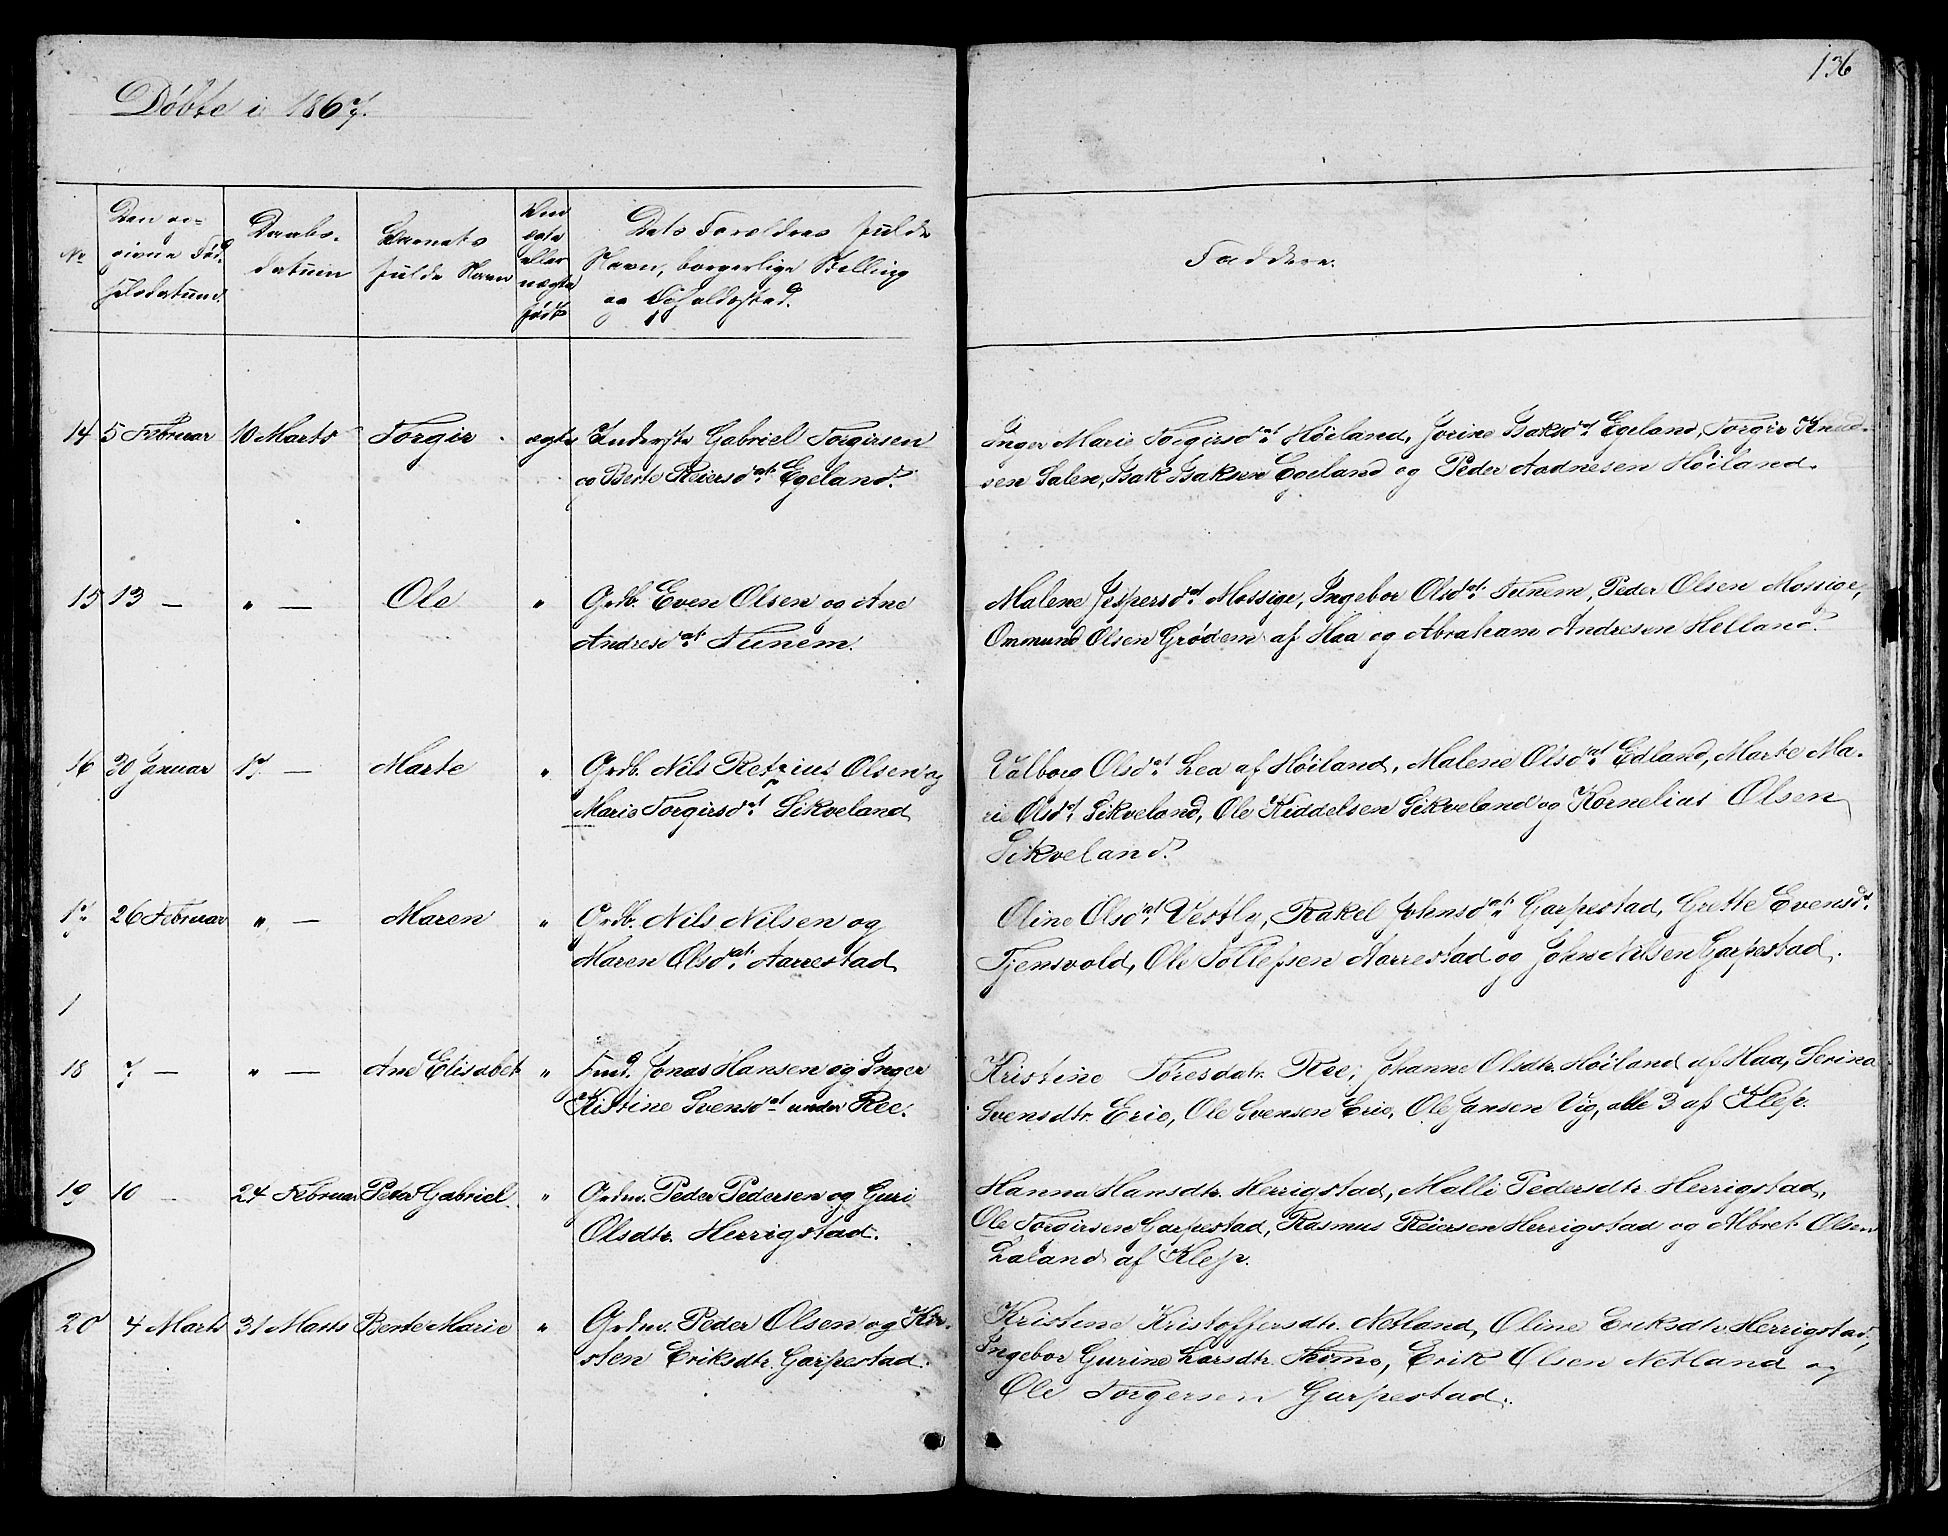 136
Döbte i 1867.
No
Den opgivne Fødselsdatum.
Daabsdatum
Barnets fulde Navn
Om ægte eller uægte født
Dets Forældres fulde Navn, borgerlige Stilling og Opholdssted.
Faddere.
14 5 Februar 10 Marts Torgir. ægte Inderste Gabriel Torgirsen
og Berte Reiersdat. Egeland.
Inger Marie Torgirsdat. Höiland, Jorine Isaksdat. Egeland, Torgir Knud-
sen Salen, Isak Isaksen Egeland og Peder Aadnesen Höiland.
15 13 — " — Ole " Grdb. Even Olsen og Ane
Andresdat. Tunem.
Malene Jespersdat. Mossige, Ingebor Olsdat. Tunem, Peder Olsen Mossige,
Ommund Olsen Grödem af Haa og Abraham Andresen Helland.
16 30 Januar 17. — Marte " Grdb. Nils Retzius Olsen og
Maris Torgirsdat. Sikveland
Valborg Olsdat. Lea af Höiland, Malene Olsdat. Edland, Marte Ma-
rie Olsdt. Sikveland, Ole Kiddelsen Sikveland og Kornelius Olsen
Sikveland.
17 26 Februar " — Maren " Grdb. Nils Nilsen og
Maren Olsdat. Aarrestad
Oline Olsdat. Vestly, Rakel Johnsdat. Garpestad, Grette Evensdt.
Tjensvold, Ole Tollefsen Aarrestad og John Nilsen Garpestad.
1
18 7 — " — Ane Elisabet " Fmd. Jonas Hansen og Inger
Kristine Svensdat. under Ree.
Kristine Toresdatr. Ree, Johanne Olsdtr. Höiland af Haa, Serina
Svensdtr. Erie, Ole Svensen Erie, Ole Jansen Vig, alle 3 af Klep.
19 10 — 24 Februar Peder Gabriel. " Grdm. Peder Pedersen og Guri
Olsdtr. Herrigstad.
Hanna Hansdtr. Herrigstad, Malli Pedersdtr. Herrigstad,
Ole Torgirsen Garpestad, Rasmus Reiersen Herrigstad og Albret Olsen
Laland af Klep.
20 4 Marts 31 Marts Berte Marie " Grdm. Peder Olsen og Kir-
sten Eriksdtr. Garpestad.
Kristine Kristoffersdtr. Netland, Oline Eriksdtr. Herrigstad,
Ingebor Gurine Larsdtr. Time, Erik Olsen Netland og
Ole Torgersen Garpestad.